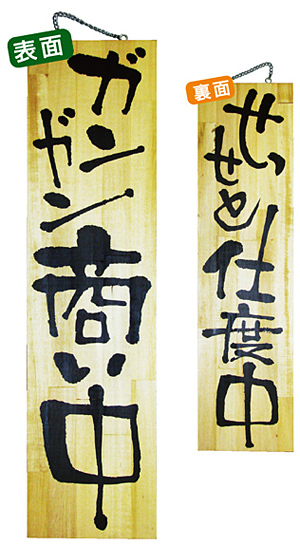 表面
ガンガン商い中
裏面
せっせと仕度中